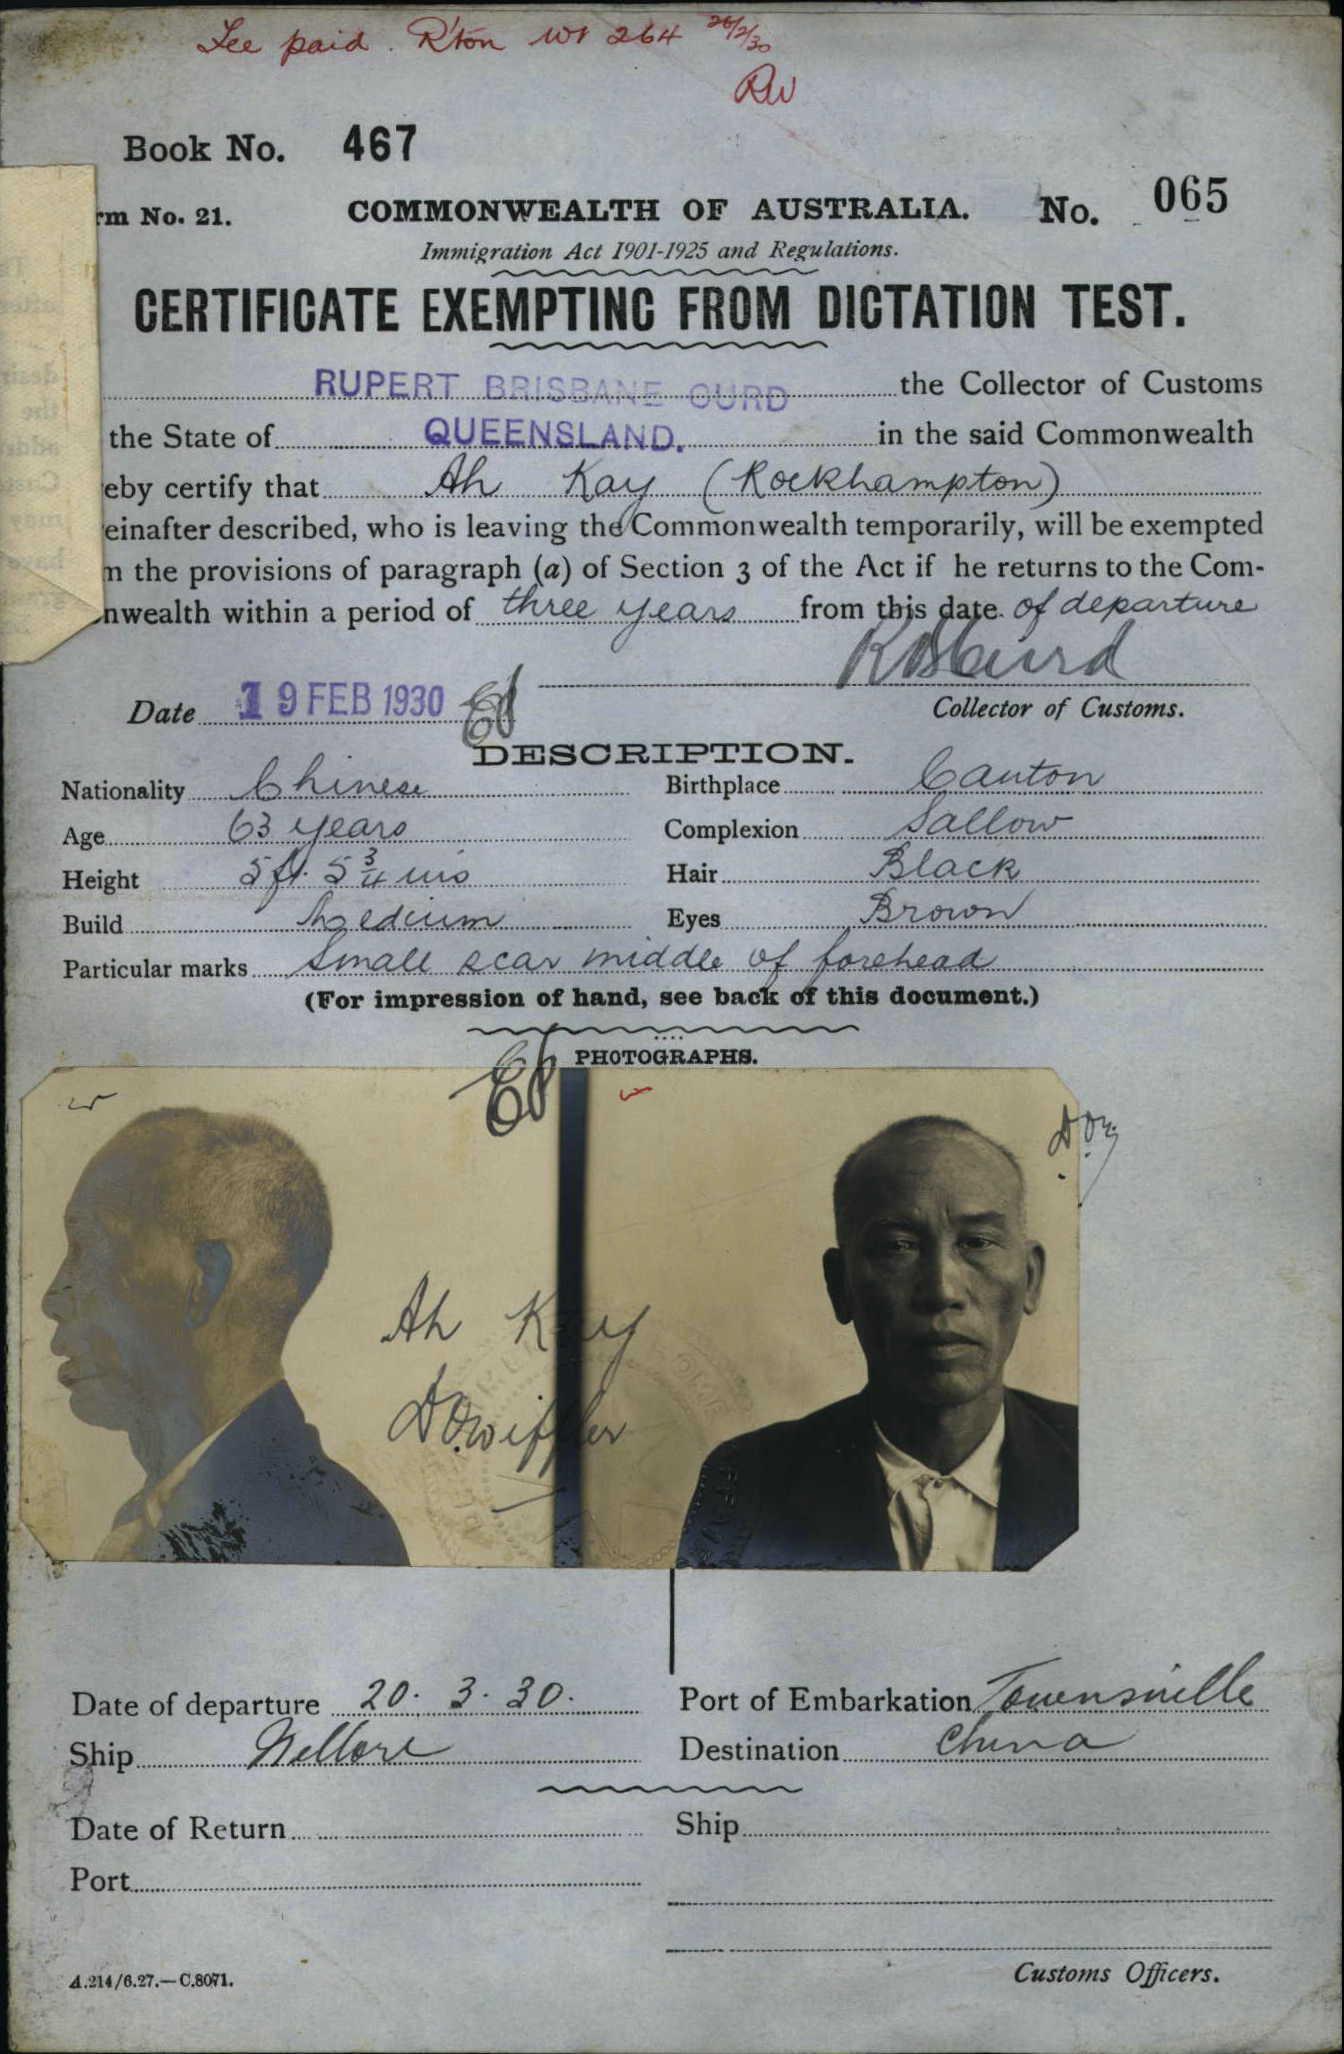 Fee paid. R'ton Wt 264 26/2/30
RW
Book No. 467
rm No. 21. COMMONWEALTH OF AUSTRALIA. No. 065
Immigration Act 1901-1925 and Regulations.
CERTIFICATE EXEMPTING FROM DICTATION TEST.
RUPERT BRISBANE CURD the Collector of Customs
the State of QUEENSLAND. in the said Commonwealth
eby certify that Ah Kay (Rockhampton)
einafter described, who is leaving the Commonwealth temporarily, will be exempted
m the provisions of paragraph (a) of Section 3 of the Act if he returns to the Com-
nwealth within a period of three years from this date of departure
RBCurd
Date 19 FEB 1930
Collector of Customs.
DESCRIPTION.
Nationality Chinese Birthplace Canton
Age 63 years Complexion Sallow
Height 5 ft. 5 3/4 ins Hair Black
Build Medium Eyes Brown
Particular marks Small scar middle of forehead
(For impression of hand, see back of this document.)
PHOTOGRAPHS.
Ah Kay
Date of departure 20. 3. 30. Port of Embarkation Townsville
Ship Nellore Destination China
Date of Return Ship
Port
A.214/6.27.—C.8071. Customs Officers.